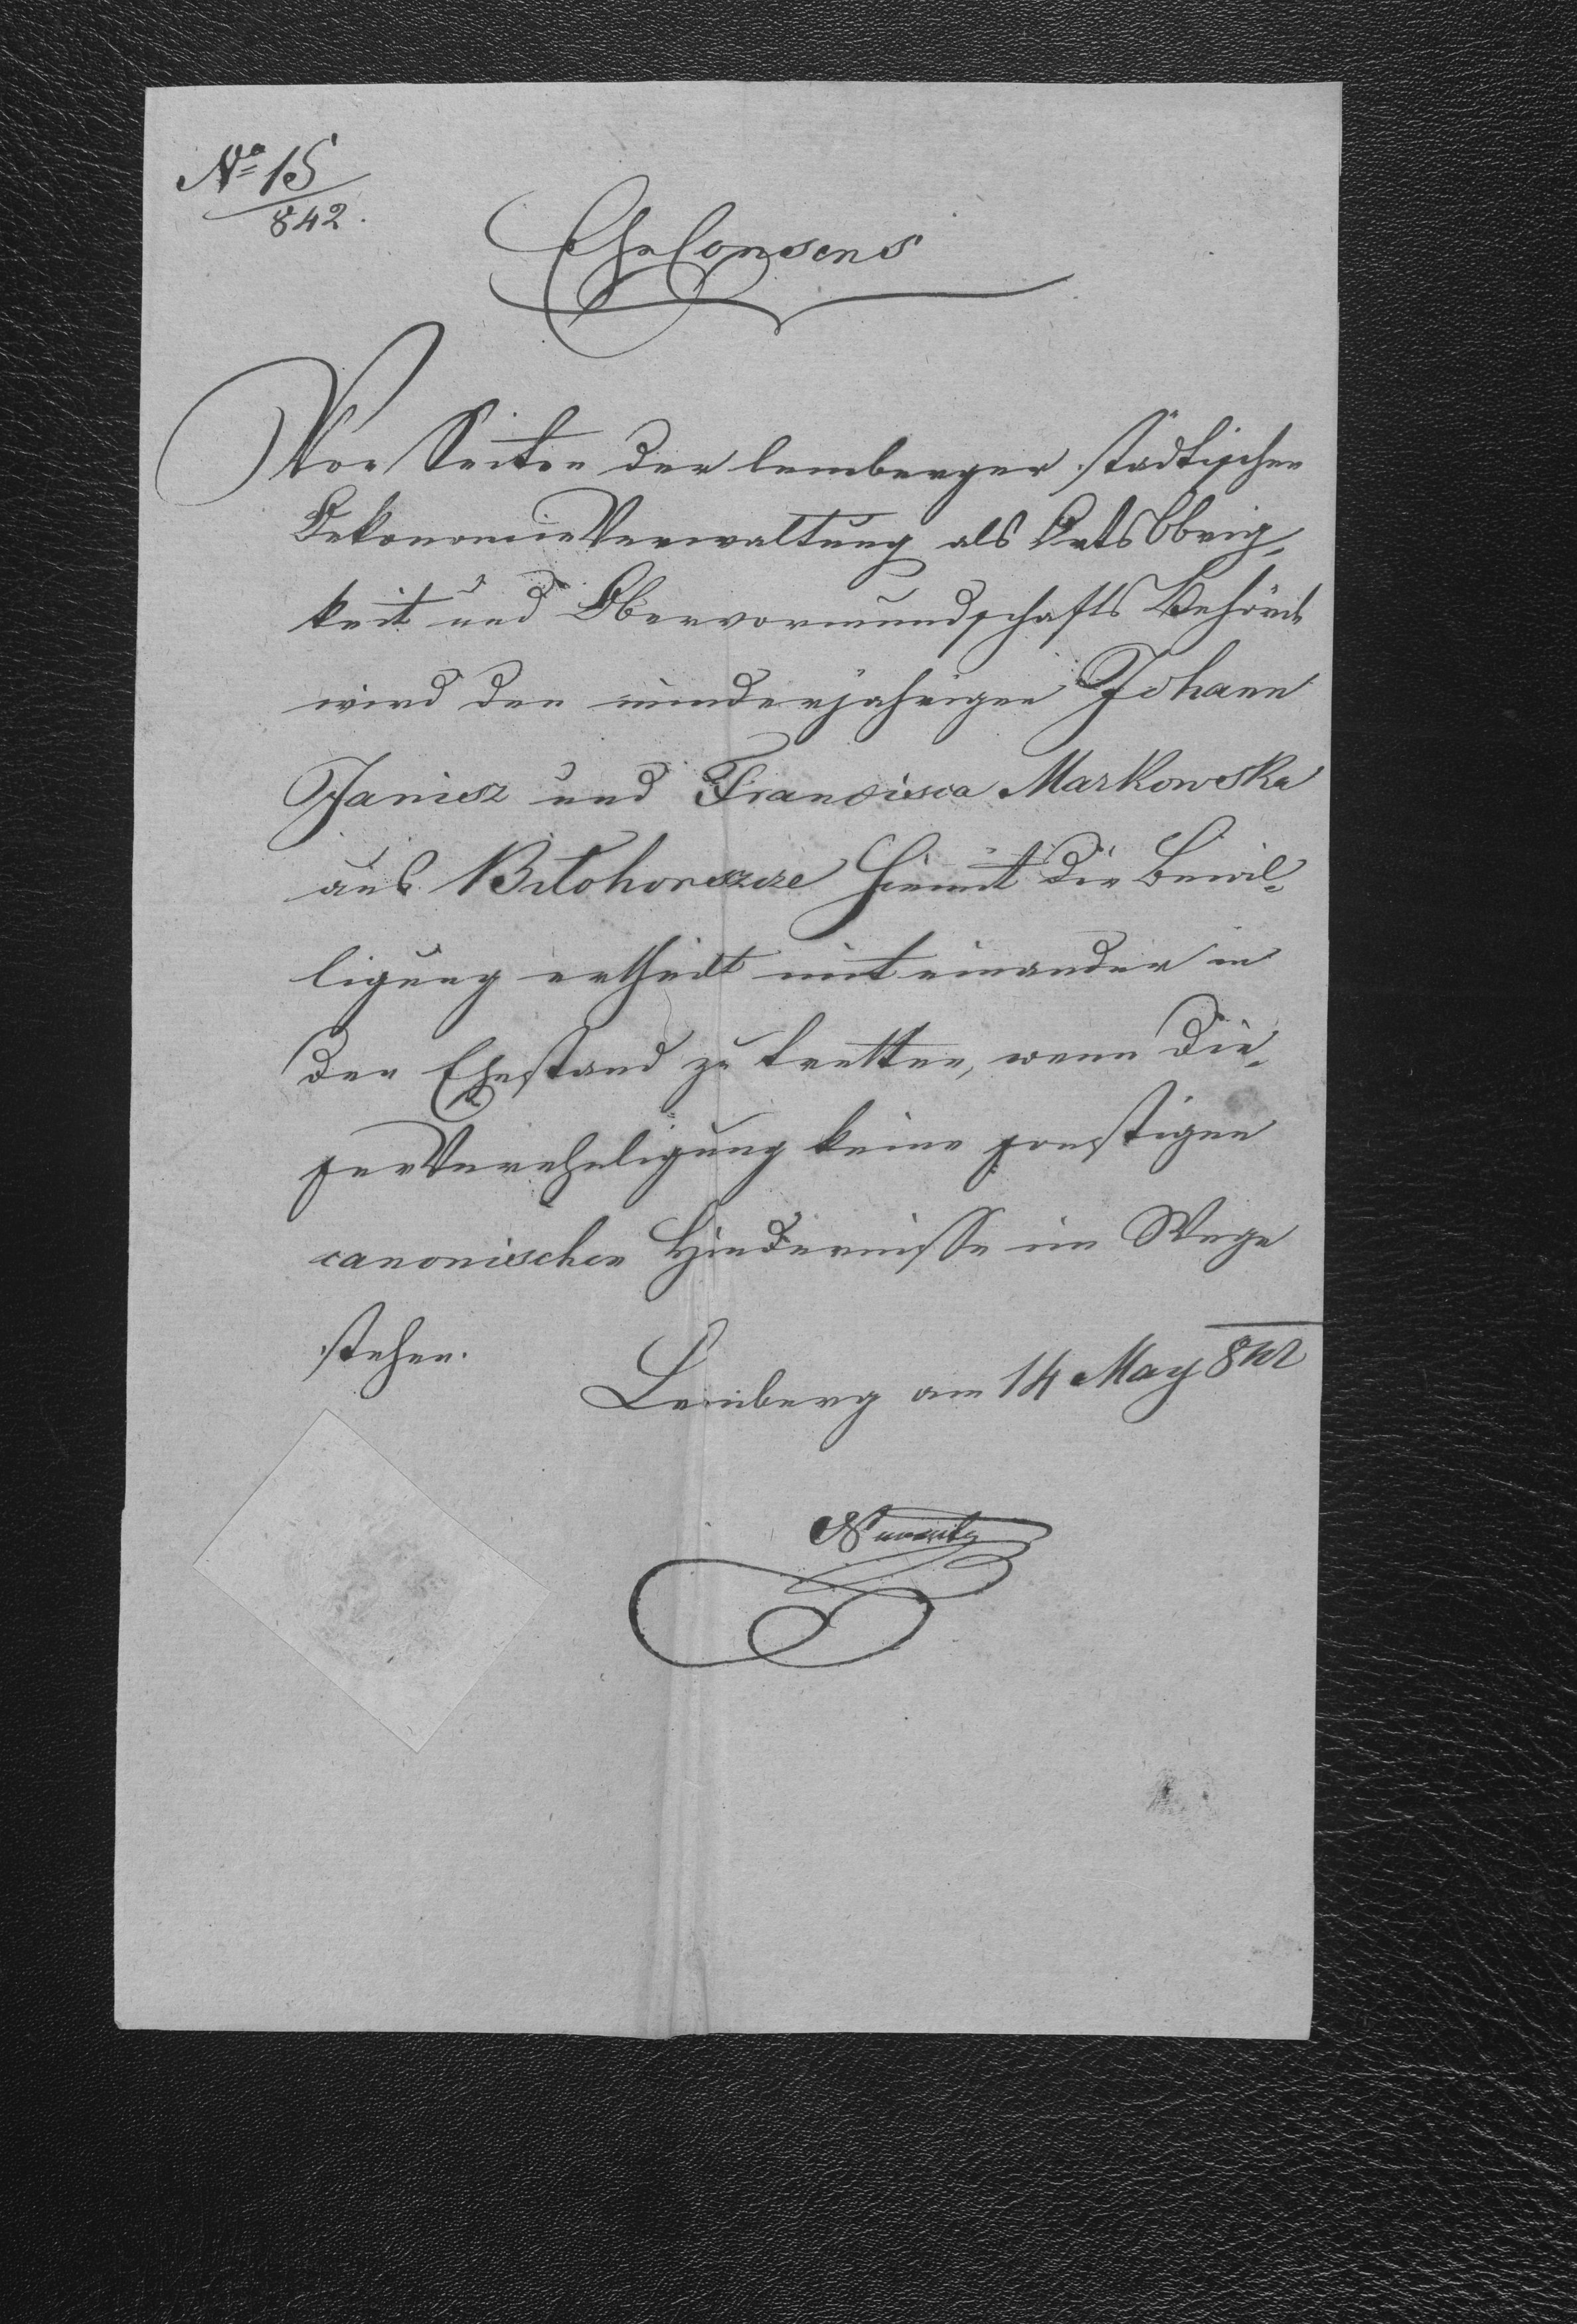 No 15
842.
EheConsens
Von Seiten der lemberger städtischen
Oekonomie Verwaltung als Orts Obrig,
keit und Obervormundschafts Behörde
wird den minderjährigen Johann
Janisz und Francisca Markowska
aus Bilohorszcze hiemit die Bewil=
ligung ertheilt mit einander in
den Ehestand zu tretten, wenn die=
ser Verehligung keine sonstigen
canonischen Hindernisse im Wege
stehen.
Lemberg am 14 May 842